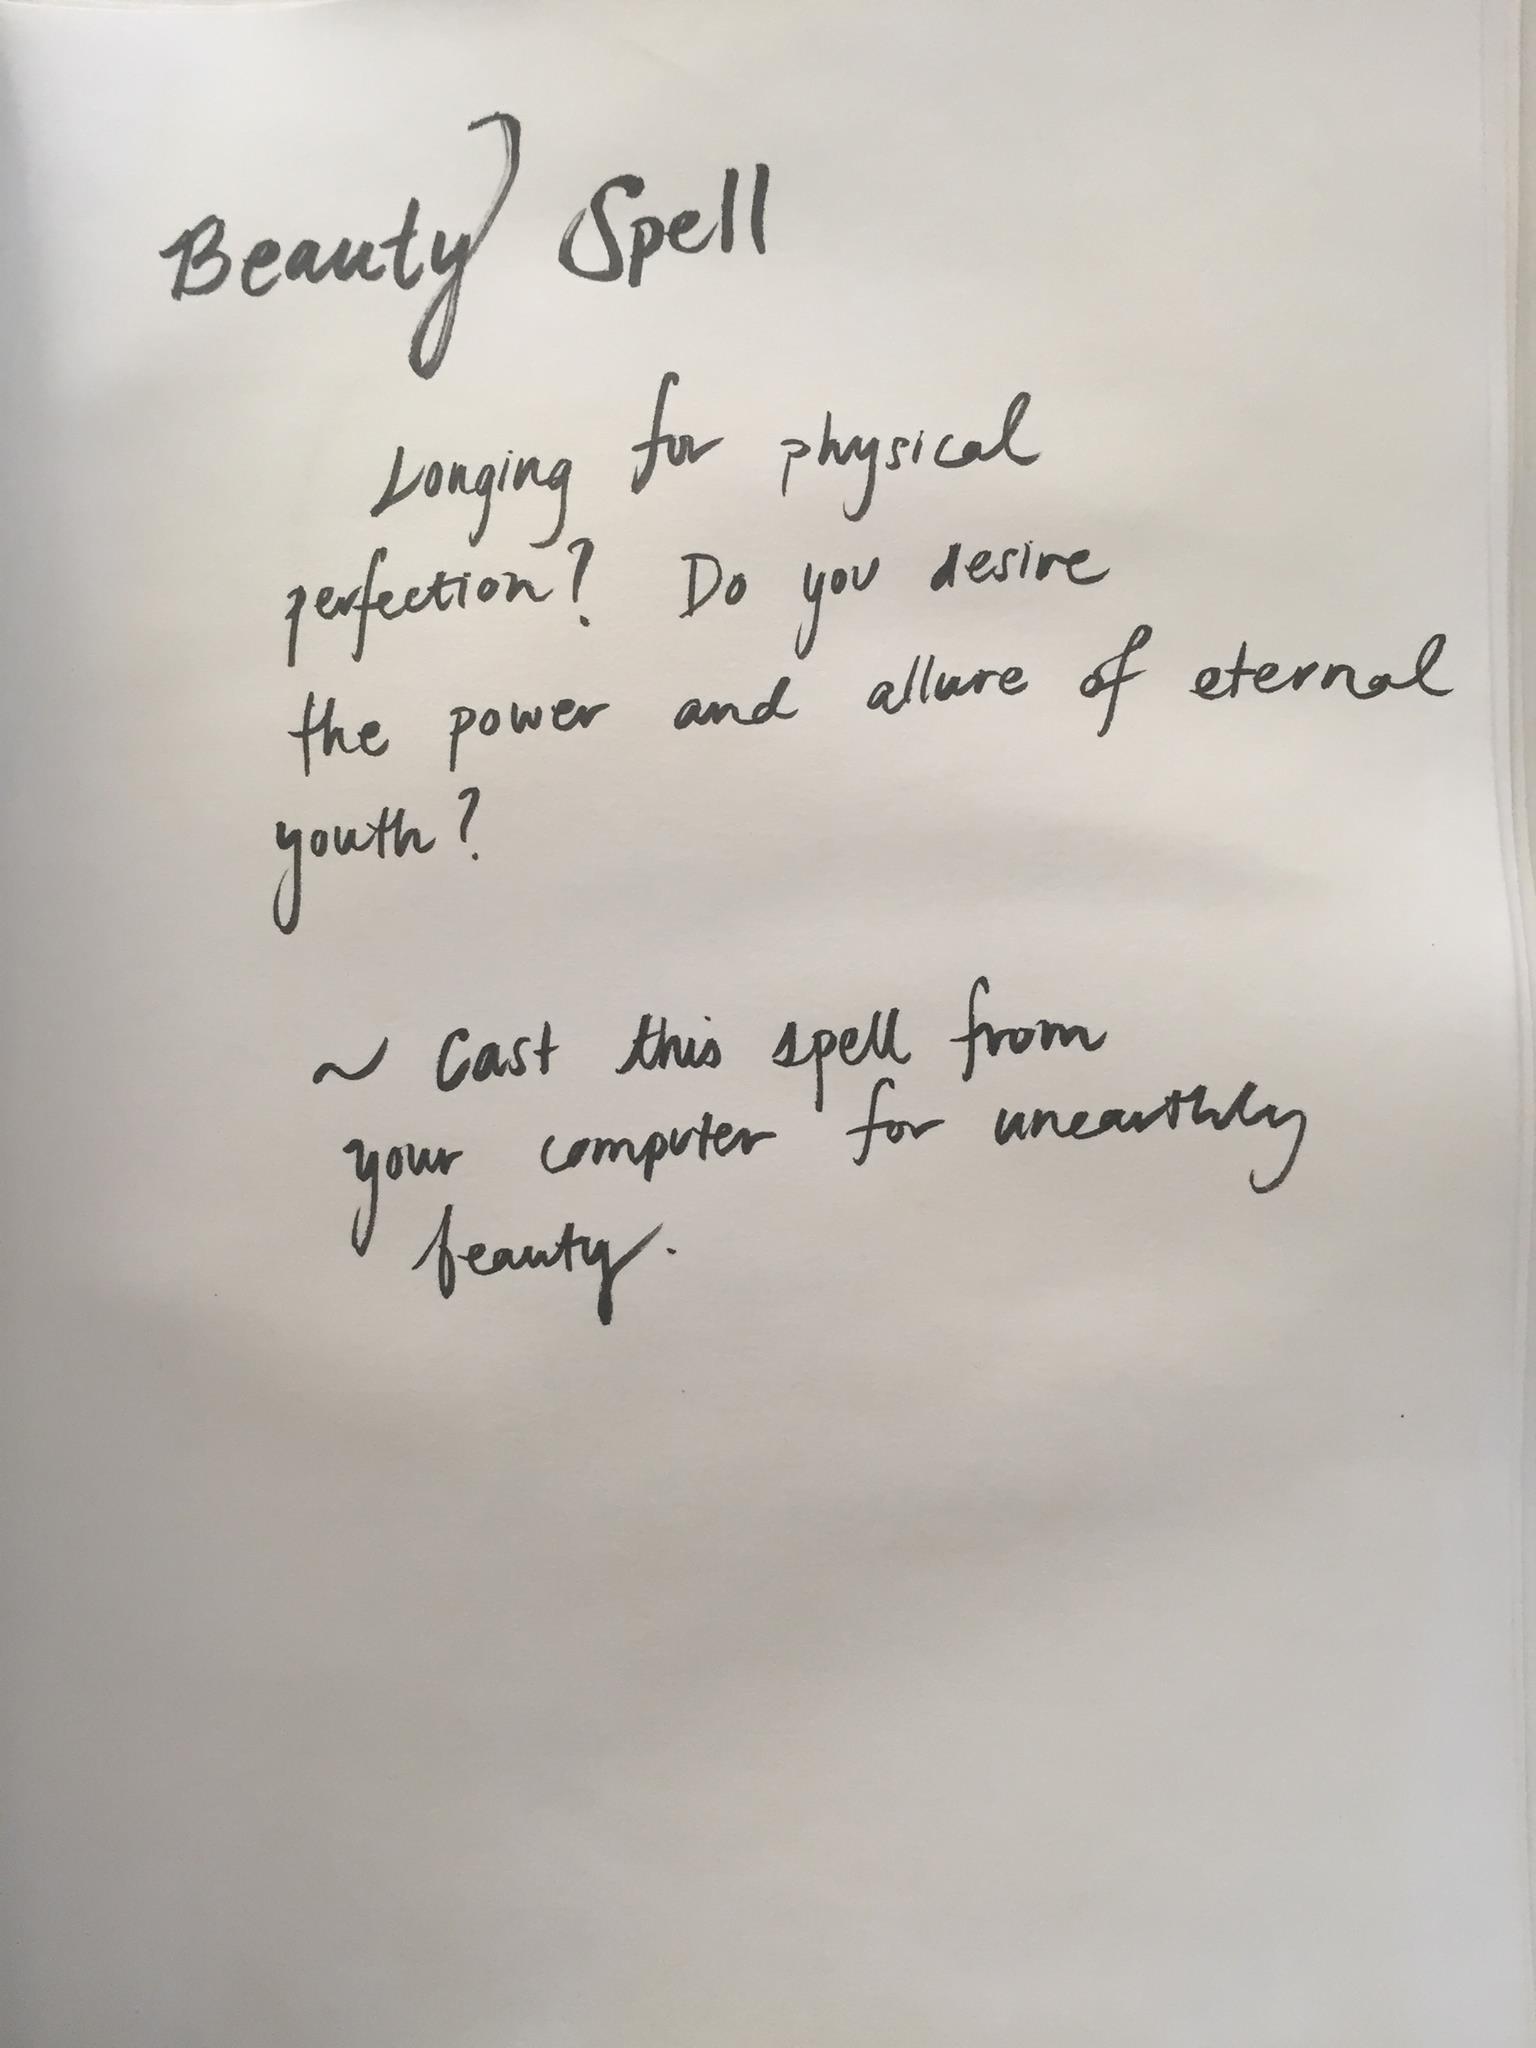 Beauty Spell
Longing for physical
perfection? Do you desire
the power and allure of eternal
youth?
~ Cast this spell from
your computer for unearthly
beauty.